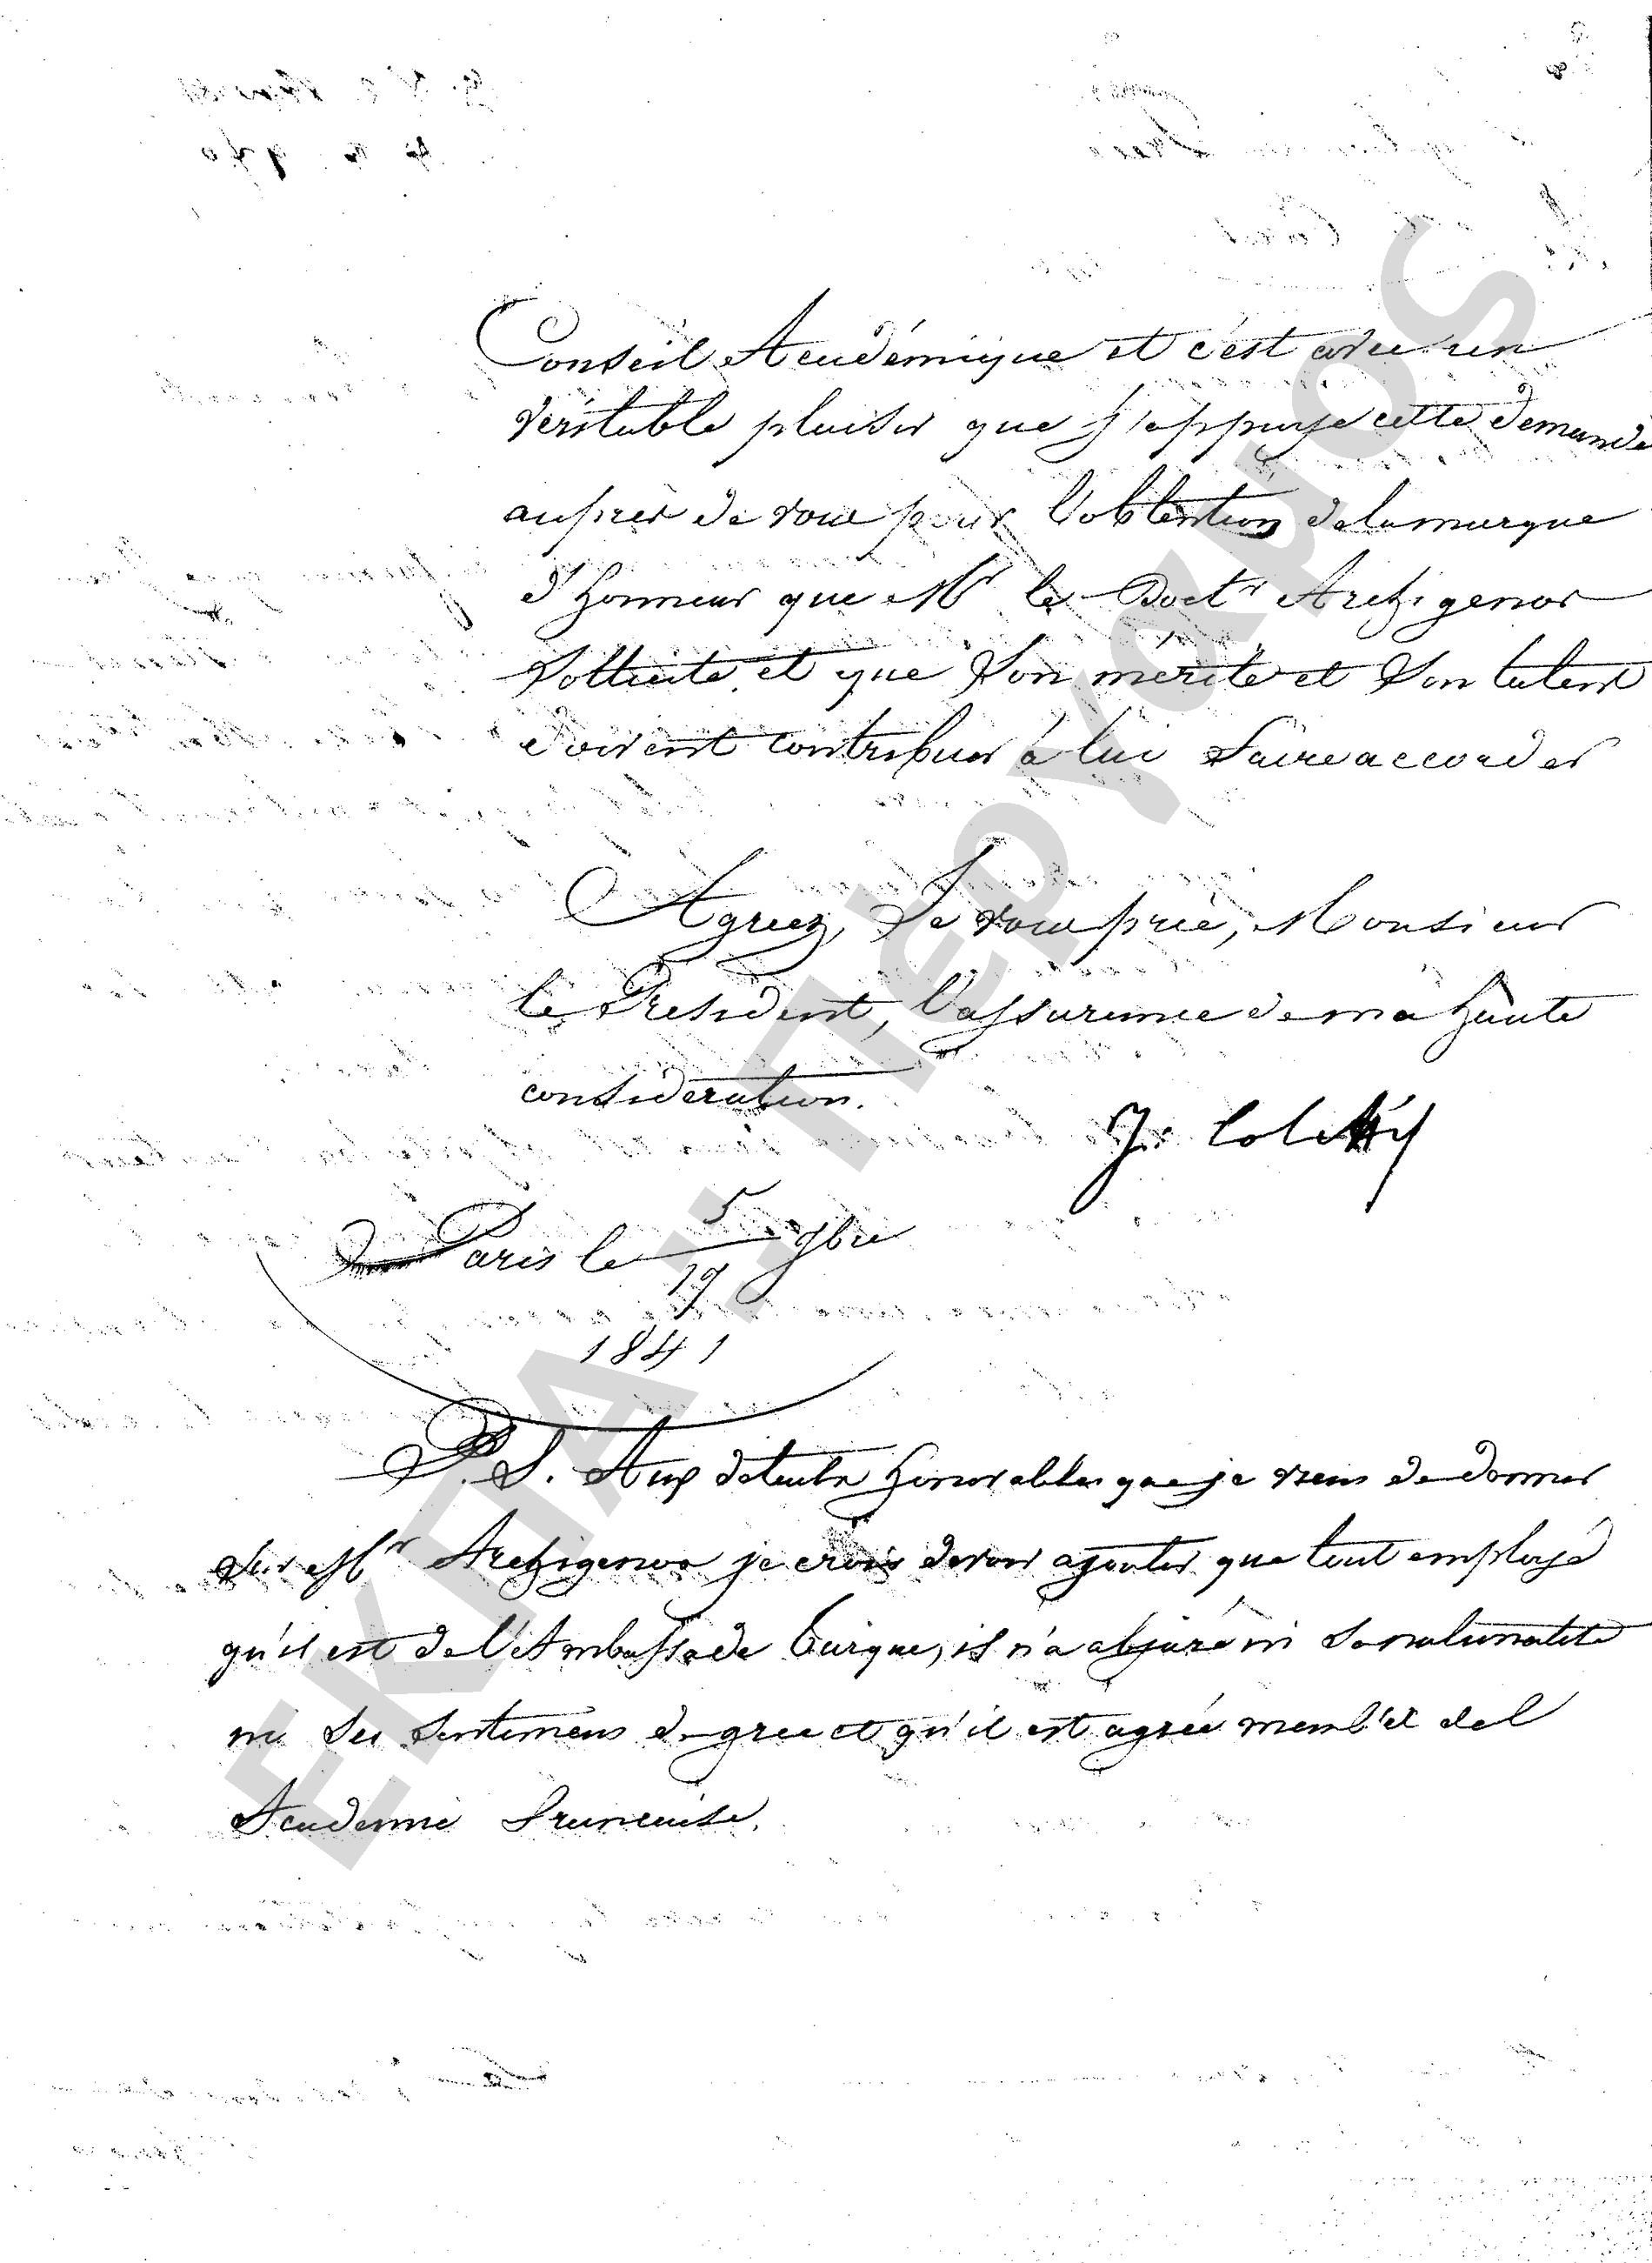 Conseil Académique et c'est avec un
véritable plaisir que j'appuye cette demande
auprès de vous pour l'obtention de la marque
d'honneur que Mr le Doctr Archigenes
sollicite et que son mérite et son talent
doivent contribuer à lui faire accorder
Agréez, Je vous prie, Monsieur
le Président, l'assurance de ma haute
considération.
J. Coletty
Paris le 5/17 9bre
1841
P. S. Aux détails honorables que je viens de donner
sur Mr Archigenes je crois devoir ajouter que tout employé
qu'il est de l'Ambassade turque, il n'a abjuré ni sa nationalité
ni ses sentimens de grec et qu'il est agréé de l
Academie Francaise.
ΕΚΠΑ - Πέργαμος